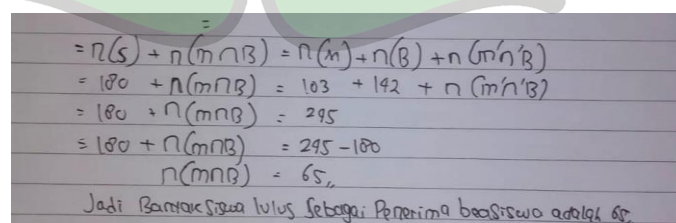 =
= n(s) + n(m∩B) = n(m) + n(B) + n(m'∩'B)
= 180 + n(m∩B) = 103 + 142 + n(m'∩'B)
= 180 + n(m∩B) = 245
= 180 + n(m∩B) = 245 - 180
n(m∩B) = 65,,
Jadi Banyak siswa lulus Sebagai Penerima beasiswa adalah 65